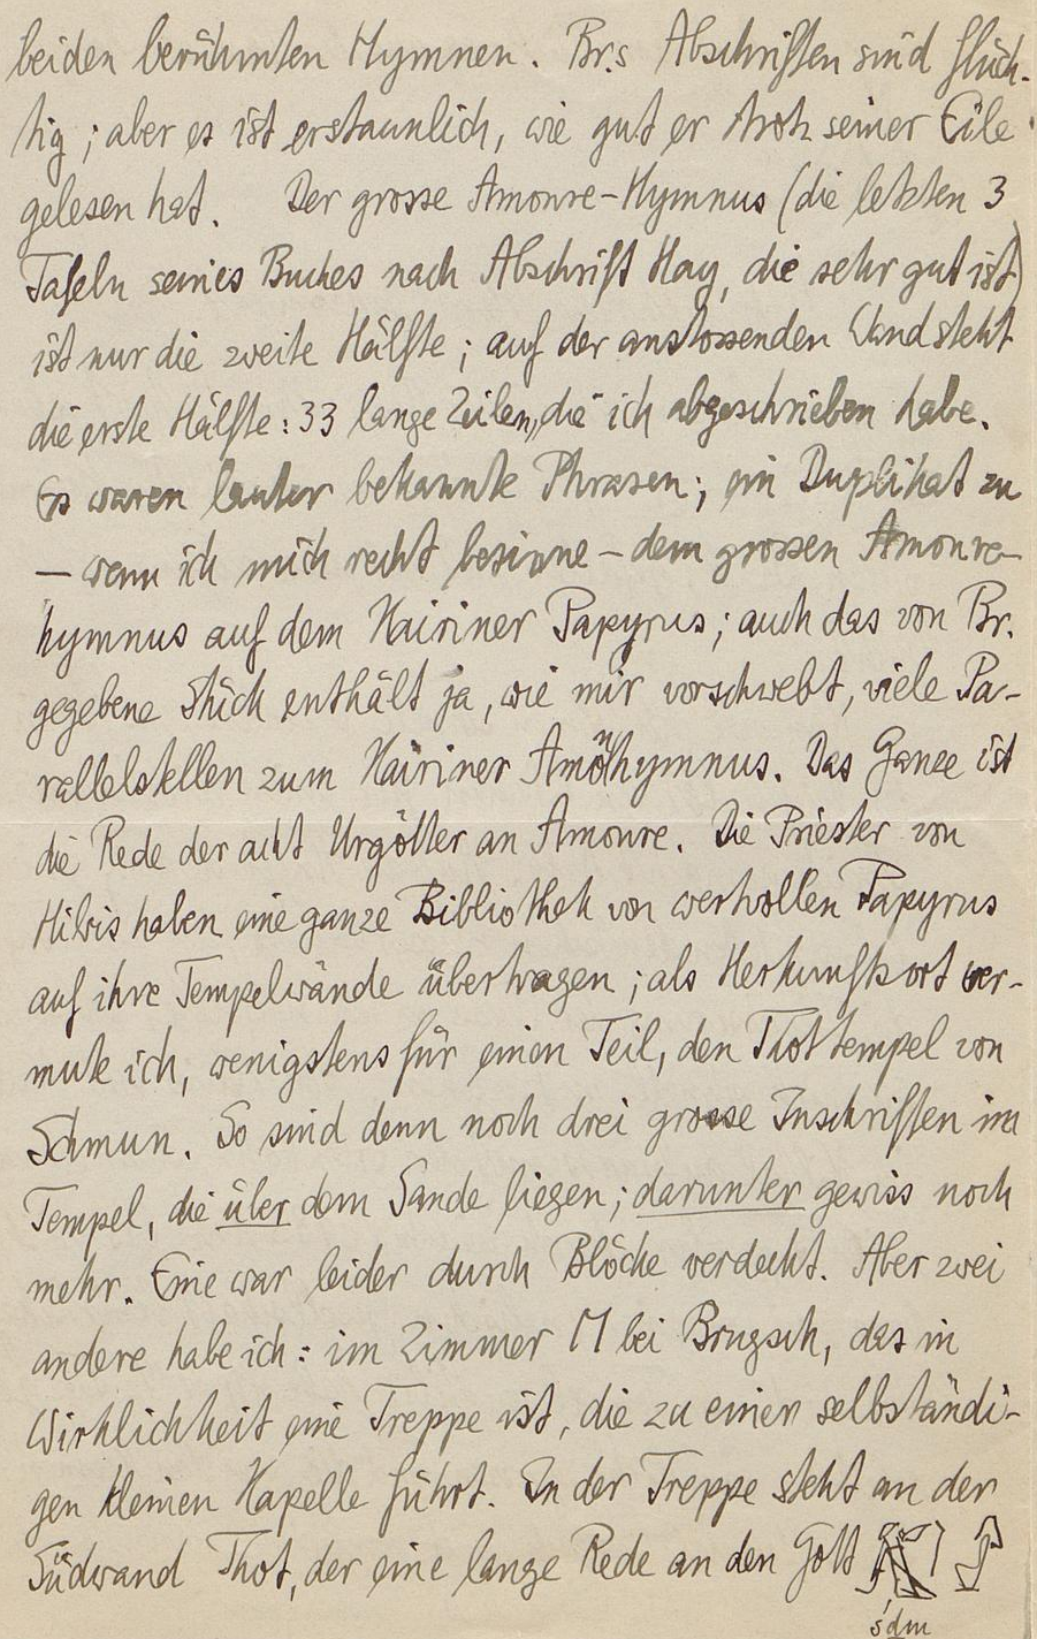 beiden berühmten Hymnen. Br.s Abschriften sind flüch-
tig; aber es ist erstaunlich, wie gut er trotz seiner Eile
gelesen hat. Der grosse Amonre-Hymnus (die letzten 3
Tafeln seines Buches nach Abschrift Hay, die sehr gut ist)
ist nur die zweite Hälfte; auf der anstossenden Wand steht
die erste Hälfte: 33 lange Zeilen, die ich abgeschrieben habe.
Es waren lauter bekannte Phrasen; ein Duplikat zu
— wenn ich mich recht besinne — dem grossen Amonre-
hymnus auf dem Kairiner Papyrus; auch das von Br.
gegebene Stück enthält ja, wie mir vorschwebt, viele Pa-
rallelstellen zum Kairiner Amonhymnus. Das Ganze ist
die Rede der acht Urgötter an Amonre. Die Priester von
Hibis haben eine ganze Bibliothek von wertvollen Papyrus
auf ihre Tempelwände übertragen; als Herkunftsort ver-
mute ich, wenigstens für einen Teil, den Thottempel von
Schmun. So sind denn noch drei grosse Inschriften im
Tempel, die über dem Sande liegen; darunter gewiss noch
mehr. Eine war leider durch Blöcke verdeckt. Aber zwei
andere habe ich: im Zimmer M bei Brugsch, das in
Wirklichkeit eine Treppe ist, die zu einer selbständi-
gen kleinen Kapelle führt. In der Treppe steht an der
Südwand Thot, der eine lange Rede an den Gott
śḏm